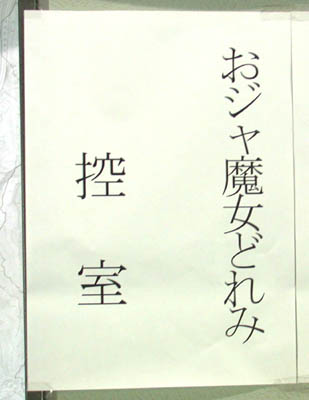 おジャ魔女どれみ
控室